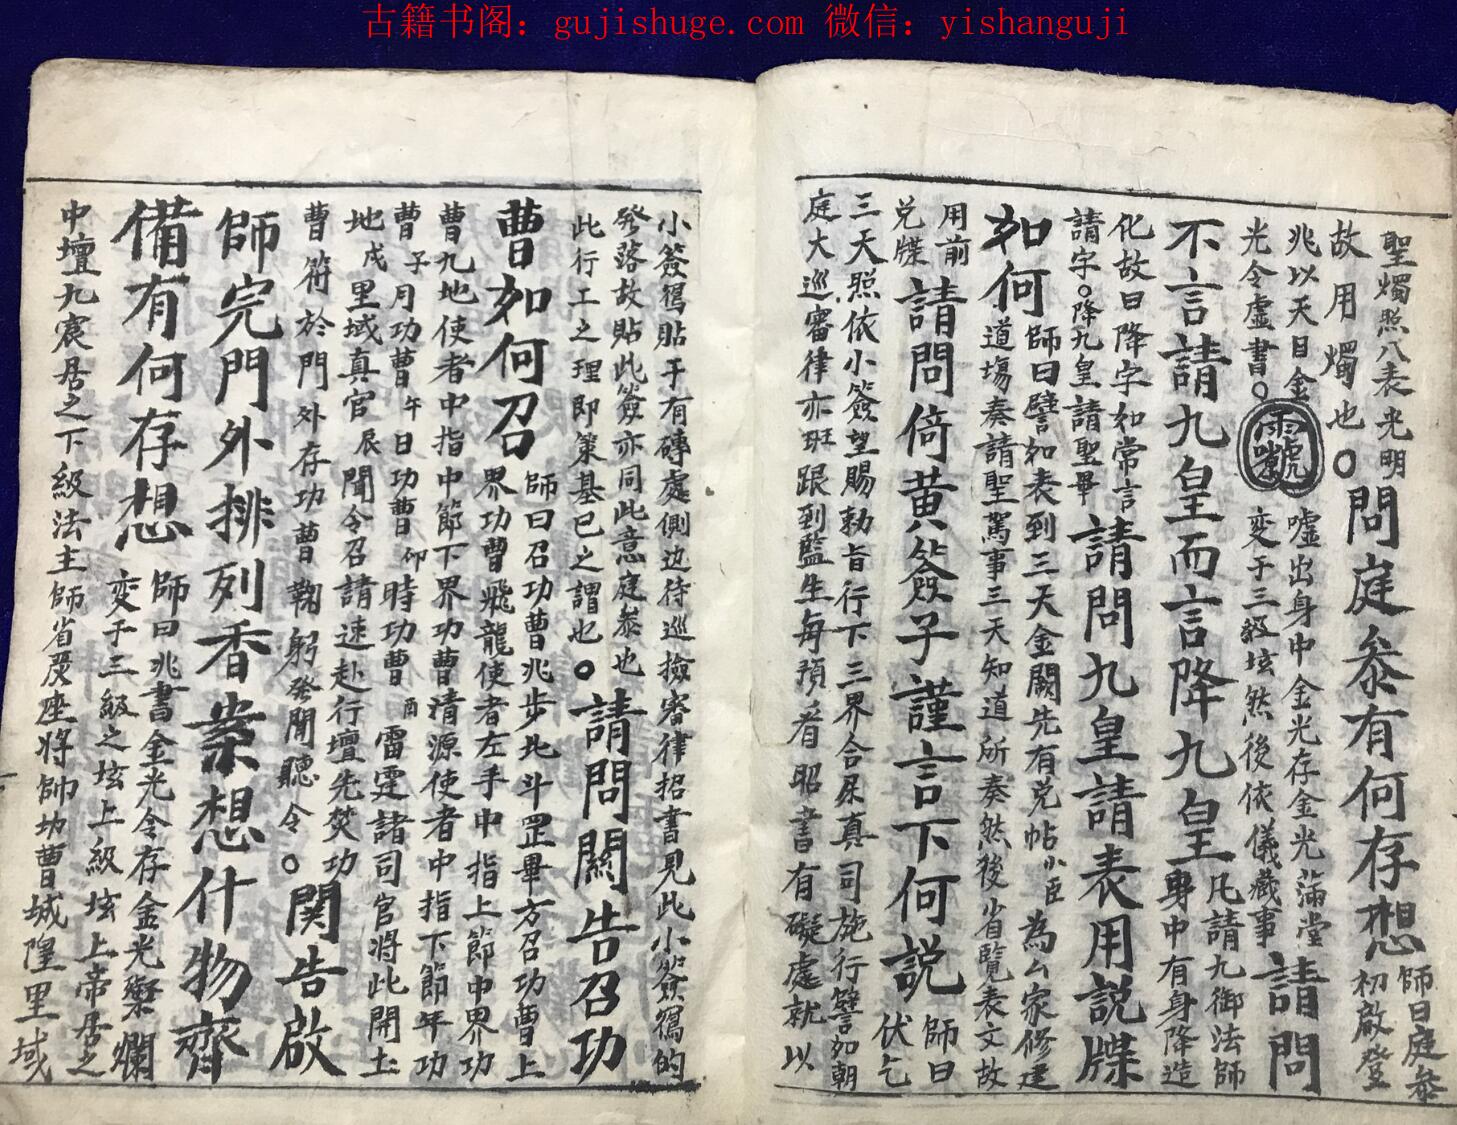 古籍书阁：gujishuge.com 微信：yishanguji
聖燭照八表光明
故用燭也。問庭叅有何存想
師曰庭叅
初啟登
兆以天目金光令虛書。
噓出身中金光存金光滿堂
变于三級垓然後依儀藏事
請問
不言請九皇而言降九皇
凡請九御法師
身中有身降造
化故曰降字如常言
請字。降九皇請聖畢
請問九皇請表用説牒
如何
師曰譬如表到三天金闕先有兌帖小臣為厶家修建
道塲奏請聖駕事三天知道所奏然後省覽表文故
用前
兌牒
請問倚黄簽子謹言下何説
師曰
伏乞
三天照依小簽望賜勅旨行下三界合屬真司施行譬如朝
庭大巡審律亦班跟到監生每預看昭書有礙處就以
小簽寫貼于有磚處側边待巡撿審律招書見此小簽寫的
發落故貼此簽亦同此意庭叅也
此行工之理即策基已之謂也。
請問關告召功
曹如何召
師曰召功曹兆步北斗罡畢方召功曹上
界功曹飛龍使者左手中指上節中界功
曹九地使者中指中節下界功曹清源使者中指下節年功
曹子月功曹午日功曹卯時功曹酉雷霆諸司官將此開土
地戌里域真官辰聞令召請速赴行壇先焚功
曹符於門外存功曹鞠躬發聞聽令。
関告啟
師完門外排列香案想什物齊
備有何存想
師曰兆書金光令存金光爍爛
变于三級之垓上級垓上帝居之
中壇九宸居之下級法主師省庭座將帥功曹城隍里域